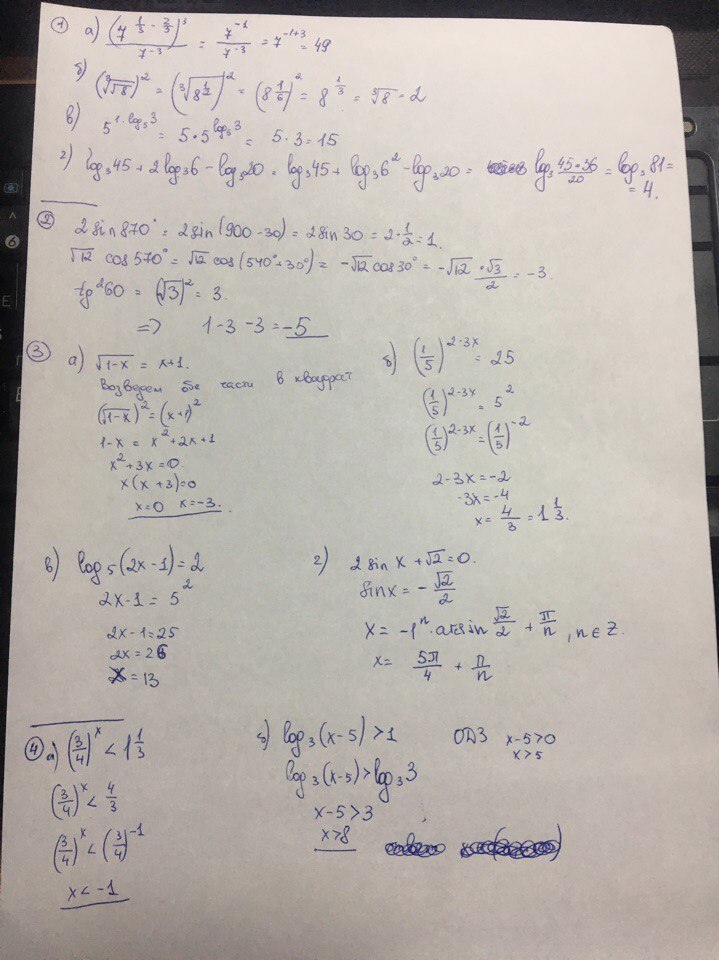 1) а) (7^(1/3 - 2/3))^3 / 7^-3 = 7^-1 / 7^-3 = 7^(-1+3) = 49
б) (∛√8)^2 = (∛(8^(1/2)))^2 = (8^(1/6))^2 = 8^(1/3) = ∛8 = 2
в) 5^(1·log₅3) = 5·5^(log₅3) = 5·3=15
г) log₃45 + 2log₃6 - log₃20 = log₃45 + log₃6² - log₃20 = log₃ 45·36/20 = log₃81 =
= 4.
2) 2 sin 870° = 2 sin (900-30) = 2 sin 30 = 2·1/2 = 1.
√12 cos 570° = √12 cos (540°+30°) = -√12 cos 30° = -√12 · √3/2 = -3.
tg²60 = (√3)² = 3.
=> 1-3-3=-5
3) а) √(1-x) = x+1.
Возведем обе части в квадрат
(√(1-x))² = (x+1)²
1-x = x²+2x+1
x²+3x=0
x(x+3)=0
x=0 x=-3.
б) (1/5)^(2-3x) = 25
(1/5)^(2-3x) = 5²
(1/5)^(2-3x) = (1/5)^-2
2-3x=-2
-3x=-4
x= 4/3 = 1 1/3.
в) log₅(2x-1)=2
2x-1 = 5²
2x-1=25
2x=26
x=13
г) 2 sin x + √2 = 0.
sin x = - √2/2
x= -1ⁿ · arcsin √2/2 + π/n, n∈Z.
x= 5π/4 + π/n
4) а) (3/4)^x < 1 1/3
(3/4)^x < 4/3
(3/4)^x < (3/4)^-1
x < -1
б) log₃(x-5) >1 ОДЗ x-5>0
x>5
log₃(x-5) > log₃3
x-5>3
x>8